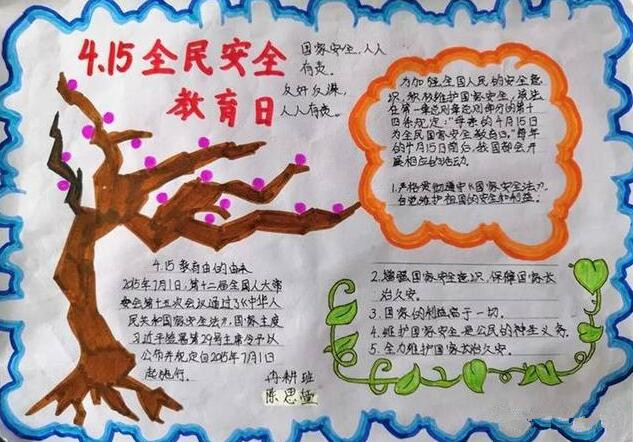 4.15全民安全
教育日
国家安全,人人
有责。
人人有责。
为加强全国人民的安全意
识,积极维护国家安全,该法
在第一章总则章总则部分的第十
四条规定:"每年的4月15日
为全民国家安全教育日。"每年
的4月15日前后,我国都会开
展相应的活动。
1.严格贯彻遵守《国家安全法》,
自觉维护祖国的安全和利益。
4.15教育日的由来
2015年7月1日,第十二届全国人大常
委会第十五次会议通过了《中华人
民共和国国家安全法》,国家主席
习近平签署第29号主席令予以
公布并规定自2015年7月1日
起施行。
冉耕班
陈思
2.增强国家安全意识,保障国家长
治久安。
3.国家的利益高于一切。
4.维护国家安全是公民的神圣义务。
5.全力维护国家长治久安。